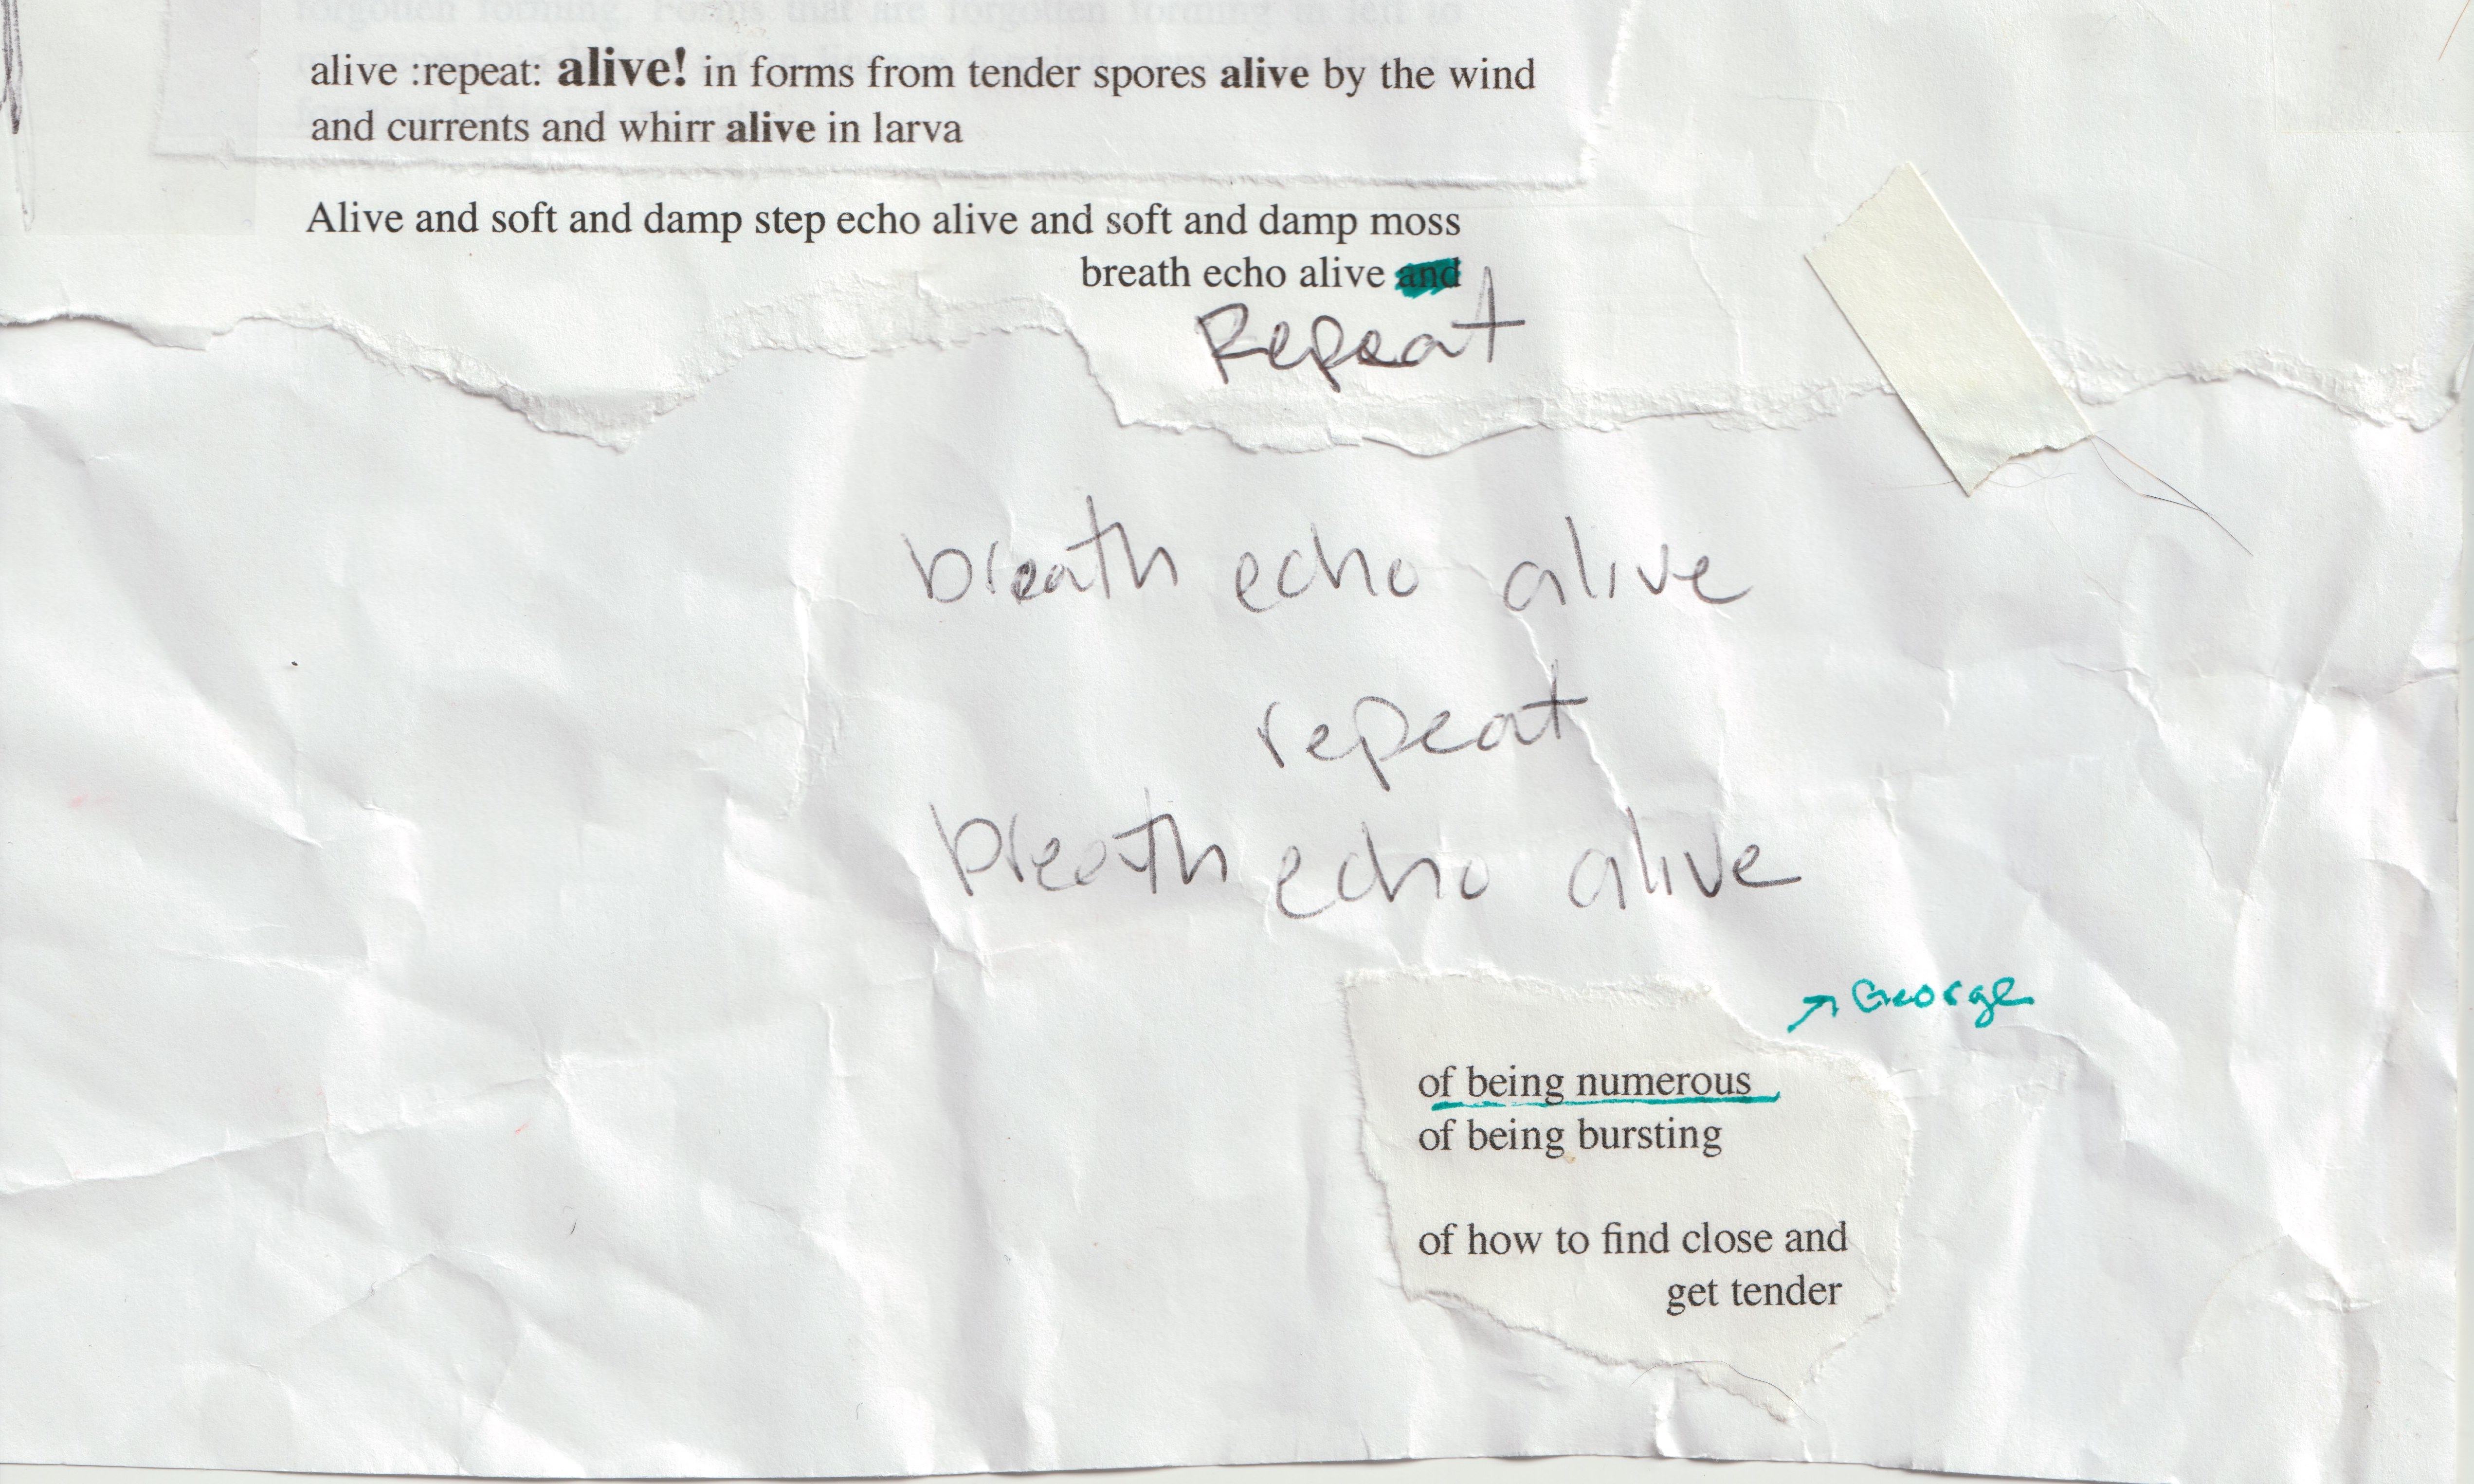 forgotten forming. Forms that are forgotten forming in left to
alive :repeat: alive! in forms from tender spores alive by the wind
and currents and whirr alive in larva
Alive and soft and damp step echo alive and soft and damp moss
breath echo alive and
Repeat
breath echo alive
repeat
breath echo alive
George
of being numerous
of being bursting
of how to find close and
get tender